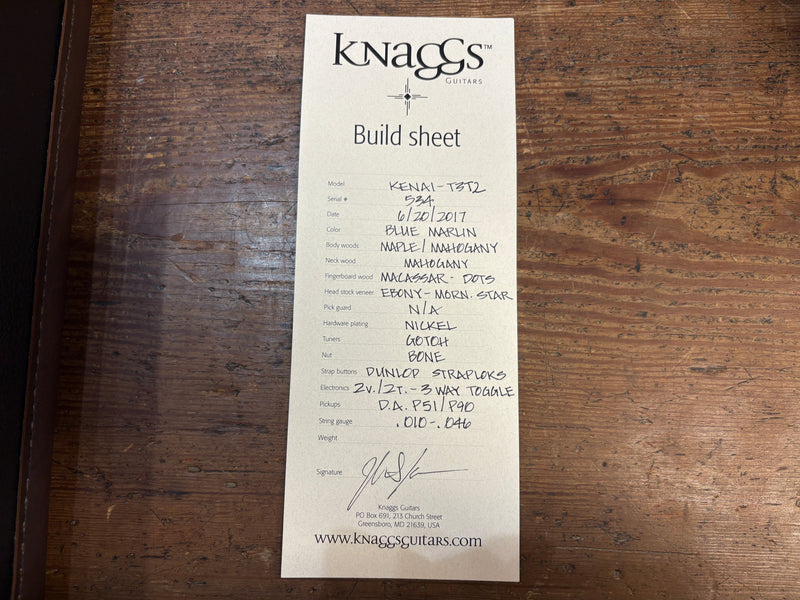 KNAGGS™
GUITARS
Build sheet
Model KENAI-T3T2
Serial # 534
Date 6/20/2017
Color BLUE MARLIN
Body woods MAPLE/MAHOGANY
Neck wood MAHOGANY
Fingerboard wood MACASSAR - DOTS
Head stock veneer EBONY-MORN. STAR
Pick guard N/A
Hardware plating NICKEL
Tuners GOTOH
Nut BONE
Strap buttons DUNLOP STRAPLOKS
Electronics 2V./2T.-3 WAY TOGGLE
Pickups D.A. P51/P90
String gauge .010-.046
Weight
Signature
Knaggs Guitars
PO Box 691, 213 Church Street
Greensboro, MD 21639, USA
www.KNAGGSGUITARS.com